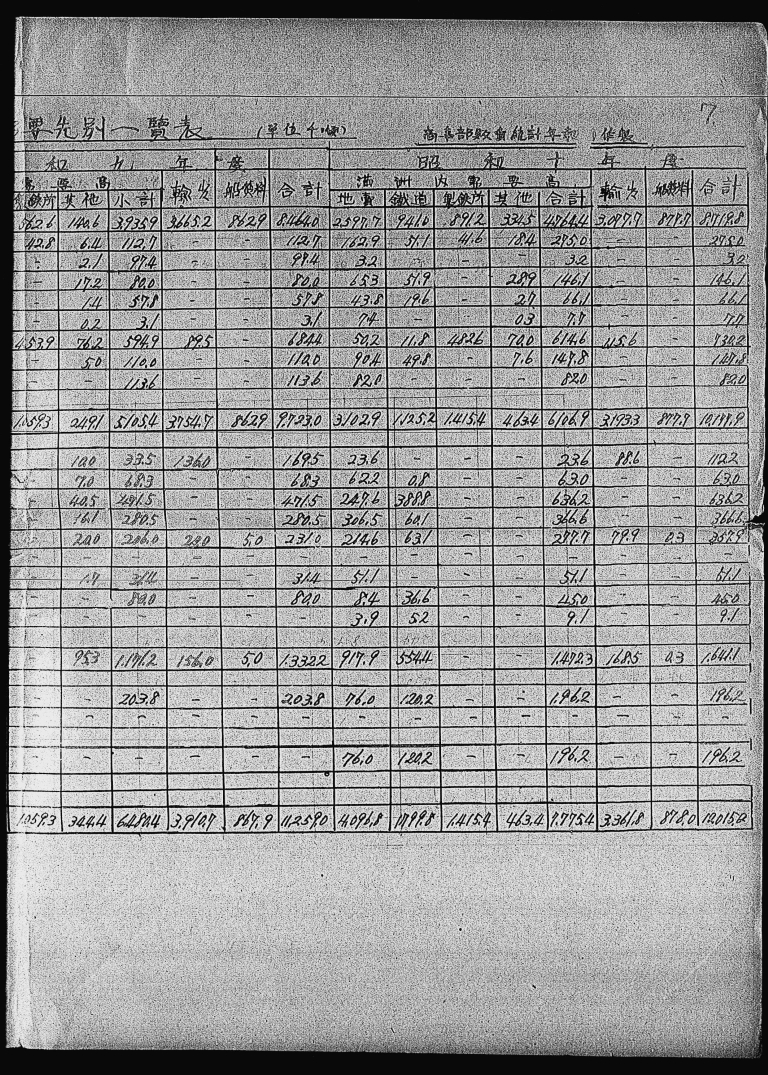 7
要先別一覽表 (單位千噸) 統計年報
和 九 年 度 昭 和 十 年 度
需要高 輸出 船燃料 合計 滿洲內需要高 輸出 船燃料 合計
其他 小計 地賣 鐵道 製鉄所 其他 合計
562.6 140.6 3,935.9 3,665.2 862.9 8,464.0 2,597.7 941.0 891.2 334.5 4,764.4 3,077.7 877.7 8,719.8
42.8 6.4 112.7 - - 112.7 162.9 51.1 4.6 18.4 275.0 - - 275.0
- 2.1 97.4 - - 97.4 3.2 - - - 3.2 - - 3.2
- 17.2 80.0 - - 80.0 65.3 51.9 - 28.9 146.1 - - 146.1
- 1.4 57.8 - - 57.8 43.8 19.6 - 2.7 66.1 - - 66.1
- 0.2 3.1 - - 3.1 7.4 - - 0.3 7.7 - - 7.7
453.9 76.2 594.9 89.5 - 684.4 50.2 11.8 482.6 70.0 614.6 115.6 - 730.2
- 5.0 110.0 - - 110.0 90.4 49.8 - 7.6 147.8 - - 147.8
- - 113.6 - - 113.6 82.0 - - - 82.0 - - 82.0
1,059.3 249.1 5,105.4 3,754.7 862.9 9,723.0 3,102.9 1,125.2 1,415.4 463.4 6,106.9 3,193.3 877.7 10,177.9
10.0 33.5 136.0 - 169.5 23.6 - - 23.6 88.6 - 112.2
- 7.0 68.3 - - 68.3 62.2 0.8 - - 63.0 - - 63.0
- 40.5 471.5 - - 471.5 247.6 388.8 - - 636.2 - - 636.2
- 16.1 280.5 - - 280.5 306.5 60.1 - - 366.6 - - 366.6
- 20.0 206.0 20.0 5.0 231.0 214.6 63.1 - - 277.7 79.9 0.3 357.9
- - - - - - - - - - - - - -
- 1.7 31.4 - - 31.4 51.1 - - - 51.1 - - 51.1
- - 80.0 - - 80.0 8.4 36.6 - - 45.0 - - 45.0
3.9 5.2 - - 9.1 - - 9.1
- 95.3 1,171.2 156.0 5.0 1,332.2 917.9 554.4 - - 1,472.3 168.5 0.3 1,641.1
- - 203.8 - - 203.8 76.0 120.2 - - 196.2 - - 196.2
- - - - - - - - - - - - - -
- - - - - - 76.0 120.2 - - 196.2 - - 196.2
1,059.3 344.4 6,480.4 3,910.7 867.9 11,259.0 4,096.8 1,799.8 1,415.4 463.4 7,775.4 3,361.8 878.0 12,015.2